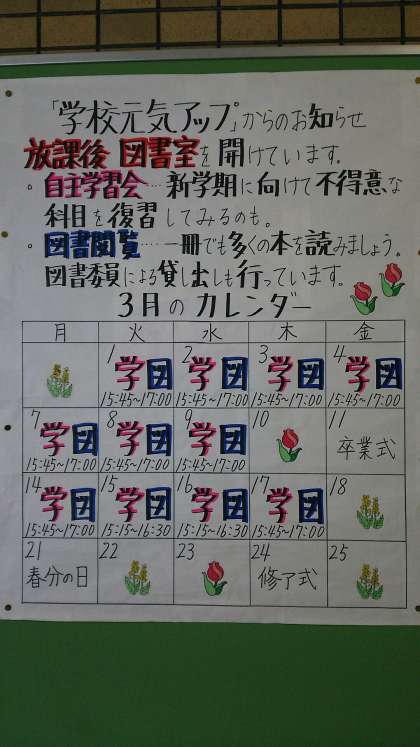 「学校元気アップ」からのお知らせ
放課後 図書室を開けています。
・自主学習会…新学期に向けて不得意な
科目を復習してみるのも。
・図書閲覧……一冊でも多くの本を読みましょう。
図書委員による貸し出しも行っています。
3月のカレンダー
月 火 水 木 金
1 学図 2 学図 3 学図 4 学図
15:45~17:00 15:45~17:00 15:45~17:00 15:45~17:00
7 学図 8 学図 9 学図 10 11 卒業式
15:45~17:00 15:45~17:00 15:45~17:00
14 学図 15 学図 16 学図 17 学図 18
15:45~17:00 15:15~16:30 15:15~16:30 15:45~17:00
21 22 23 24 25
春分の日 修了式